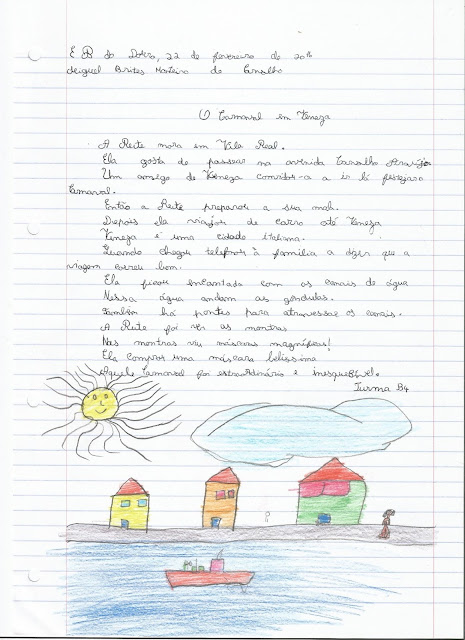 E B do Douro, 22 de fevereiro de 2011
Miguel Brites Monteiro de Carvalho
O Carnaval em Veneza
A Reite mora em Vila Real.
Ela gosta de passear na avenida Carvalho Araújo
Um amigo de Veneza convidou-a a ir lá festejar o
Carnaval.
Então a Reite preparou a sua mala.
Depois ela viajou de carro até Veneza
Veneza é uma cidade italiana.
Quando chegou telefonou à família a dizer que a
viagem correu bem.
Ela ficou encantada com os canais de água
Nessa água andam as gôndolas.
Também há pontes para atravessar os canais.
A Reite foi ver as montras
Nas montras viu máscaras magníficas!
Ela comprou uma máscara belíssima
Aquele Carnaval foi extraordinário e inesquecível.
Turma B4